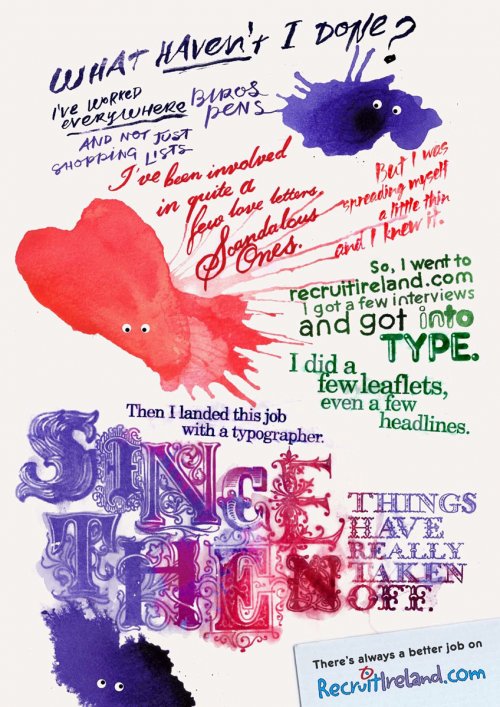 WHAT HAVEN'T I DONE?
I'VE WORKED
EVERYWHERE BIROS
PENS
AND NOT JUST
SHOPPING LISTS
I've been involved
in quite a
few love letters,
Scandalous
Ones.
But I was
spreading myself
a little thin
and I knew it.
So, I went to
recruitireland.com
I got a few interviews
and got into
TYPE.
I did a
few leaflets,
even a few
headlines.
Then I landed this job
with a typographer.
SINCE
THEN
THINGS
HAVE
REALLY
TAKEN
OFF.
There's always a better job on
RecruitIreland.com